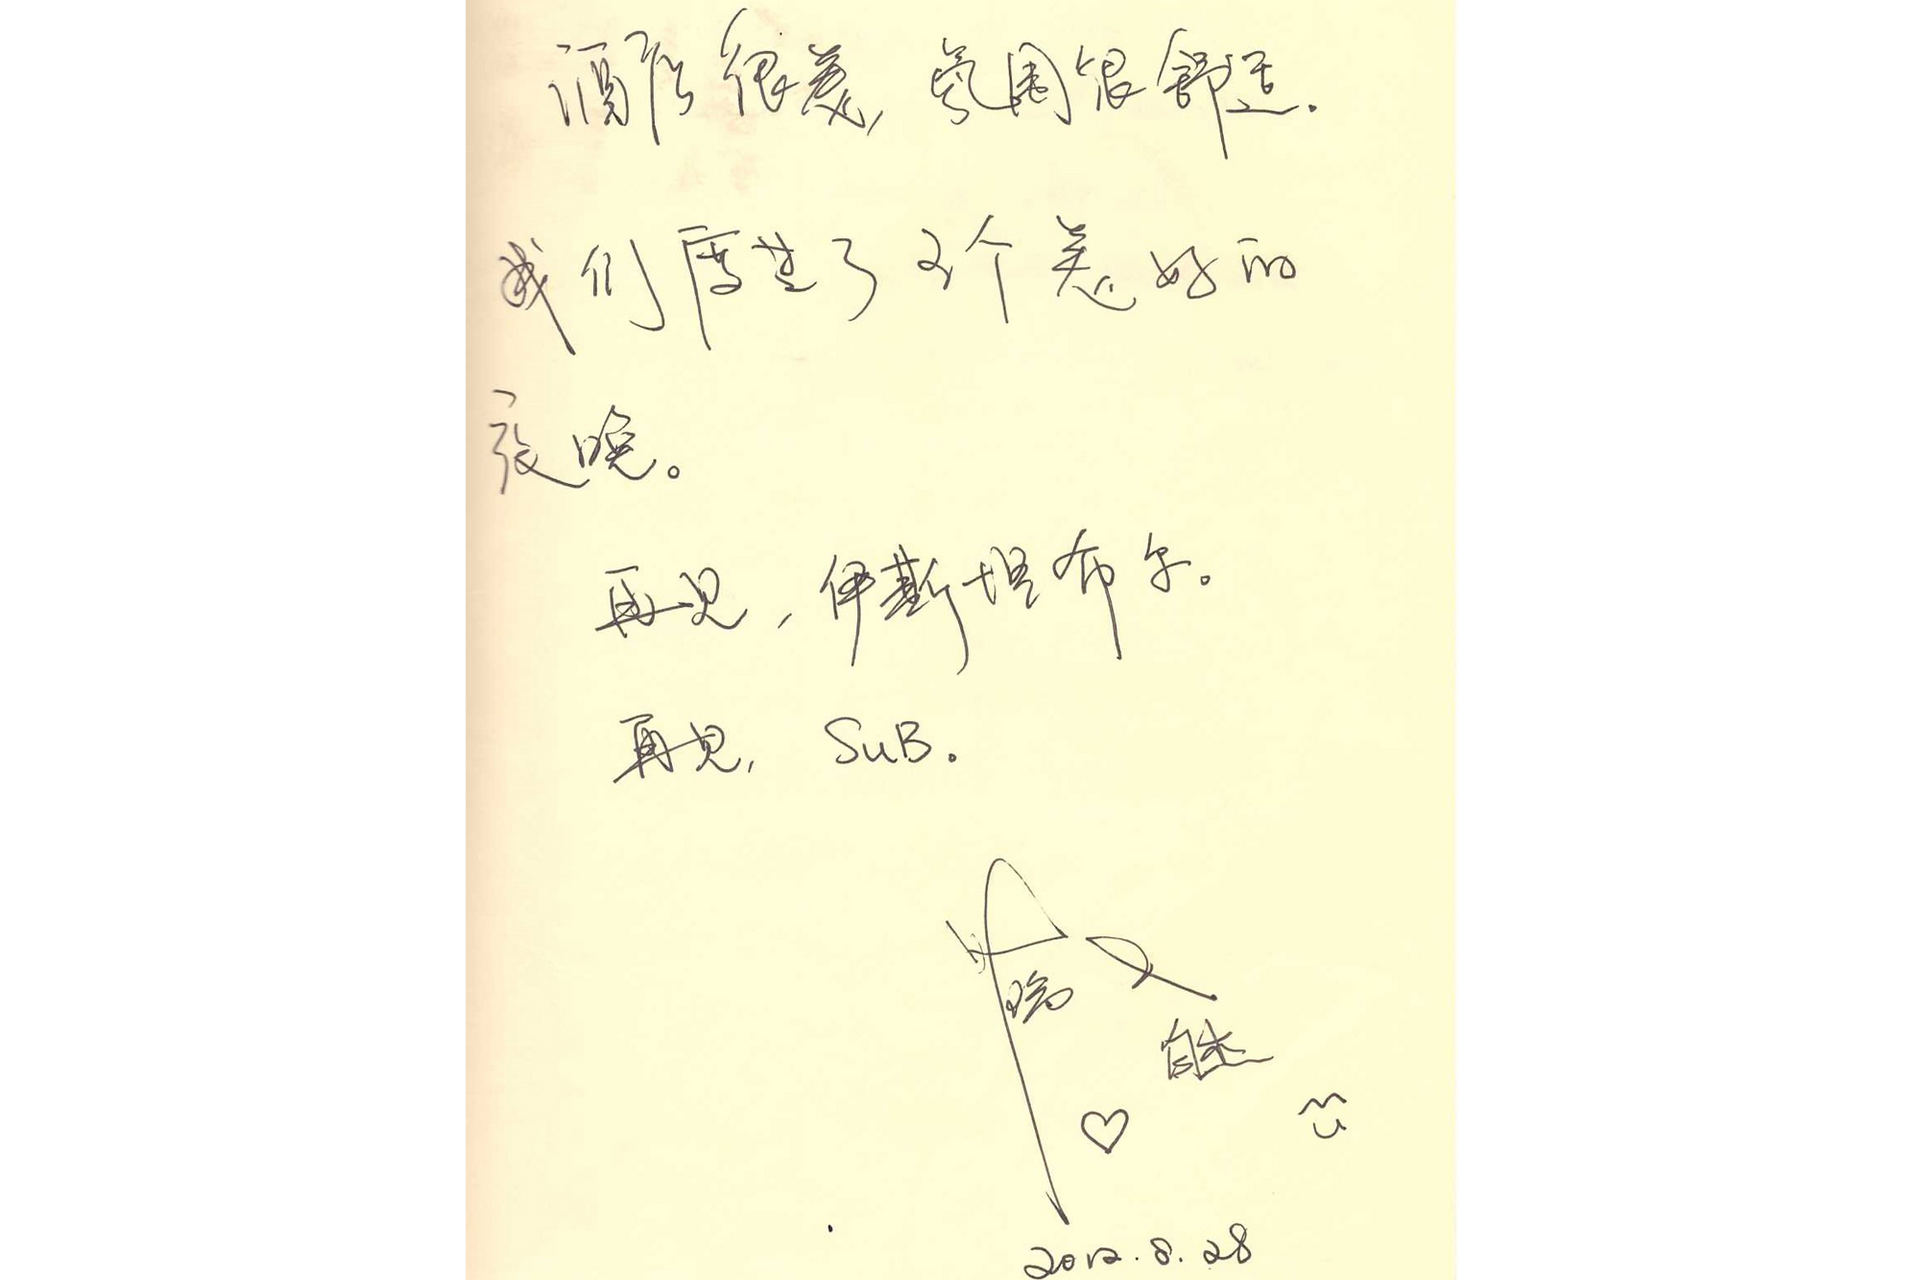 酒店很美，氛围很舒适.
我们度过了2个美好的
夜晚。
再见，伊斯坦布尔。
再见， SuB。
2012.8.28